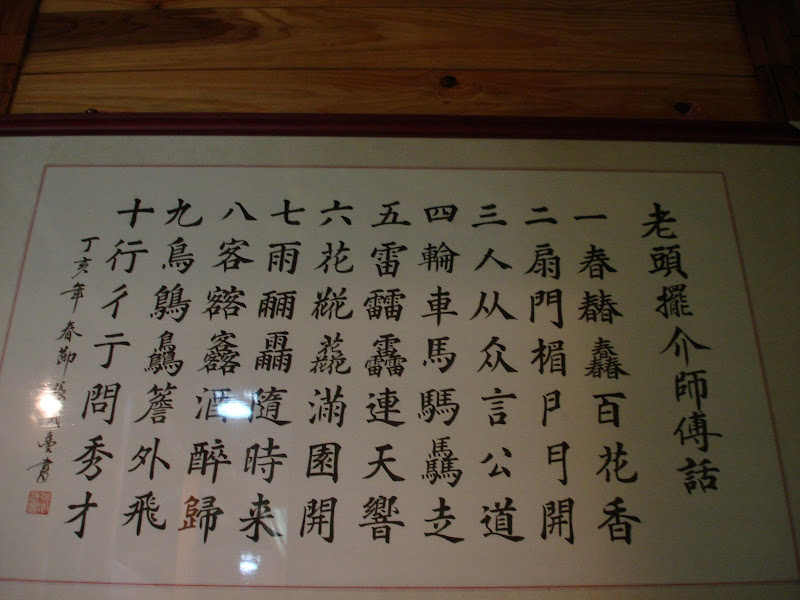 老頭擺介師傅話
一春百花香
二扇門楣開
三人从众言公道
四輪車馬騳驫走
五雷靐連天響
六花滿園開
七雨隨時来
八客酒醉歸
九鳥簷外飛
十行彳亍問秀才
丁亥年春節 書